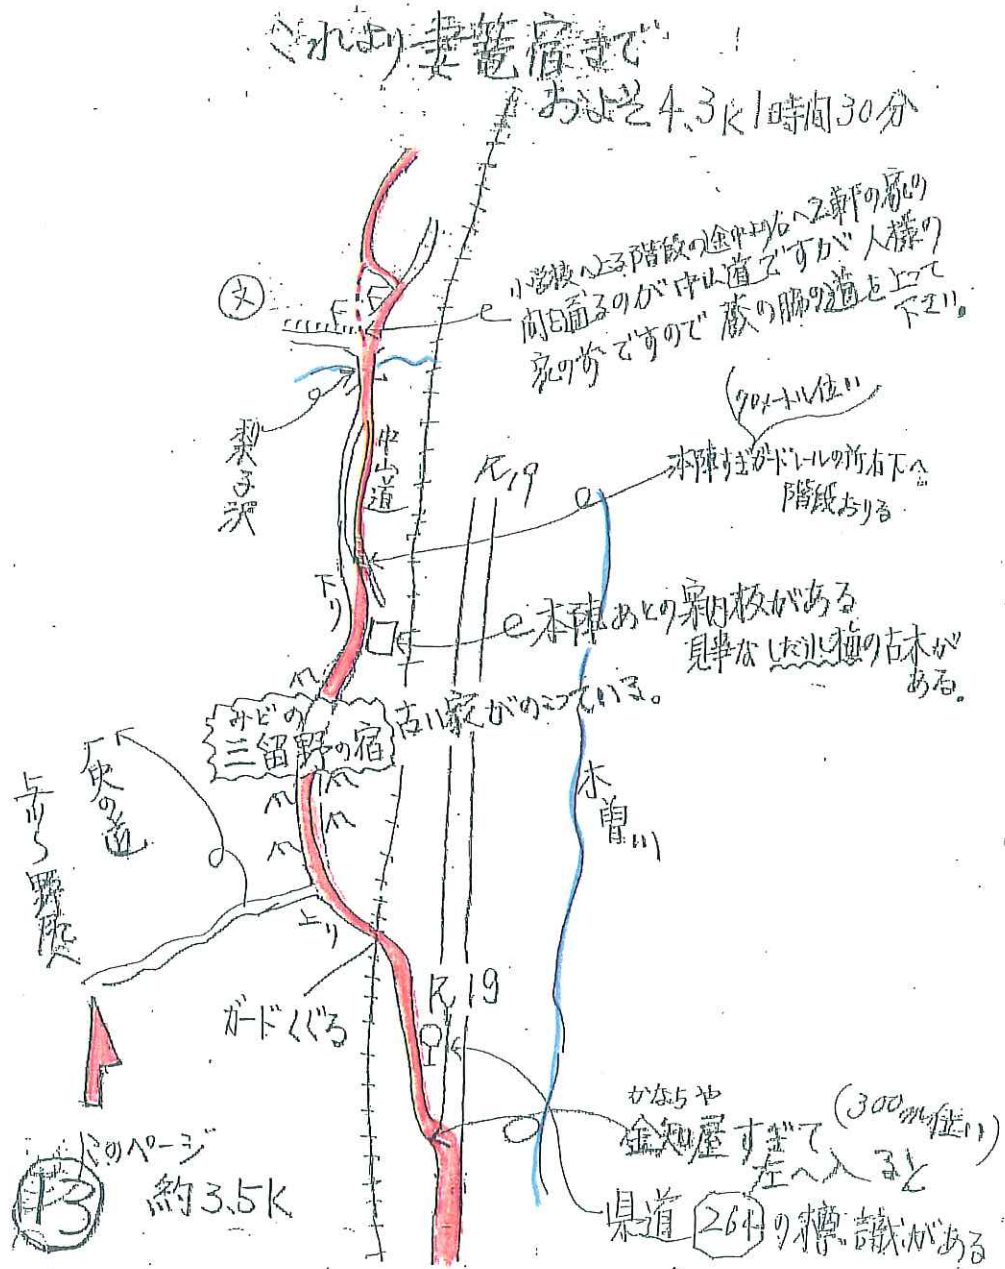 これより妻籠宿まで
およそ4.3K 1時間30分
小学校へ上る階段の途中より右へ2軒の家の
間を通るのが中山道ですが人様の
家の前ですので蔵の脇の道を上って
下さい。
文
梨子沢
中山道
R,19
(70メートル位い)
本陣すぎガードレールの所右下へ
階段おりる
下り
本陣あとの案内板がある
見事なしだれ梅の古木が
ある。
みどの
三留野の宿
古い家がのこっている。
木曽川
歴史の道
与川
野尻へ
上り
ガードくぐる
R,19
かなちや
金知屋すぎて
(300m位い)
左へ入ると
県道264の標識がある
このページ
13
約3.5K